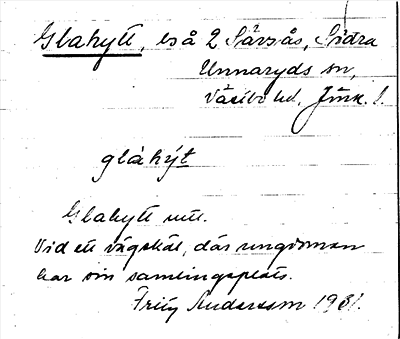 Glahytt, bså 2 Sävsås, Södra
Unnaryds sn,
Västbo hd, Jönk. l.
gláhýt
Glahytt utt.
Vid ett vägskäl, där ungdomen
har sin samlingsplats.
Fritz Andersson 1931.